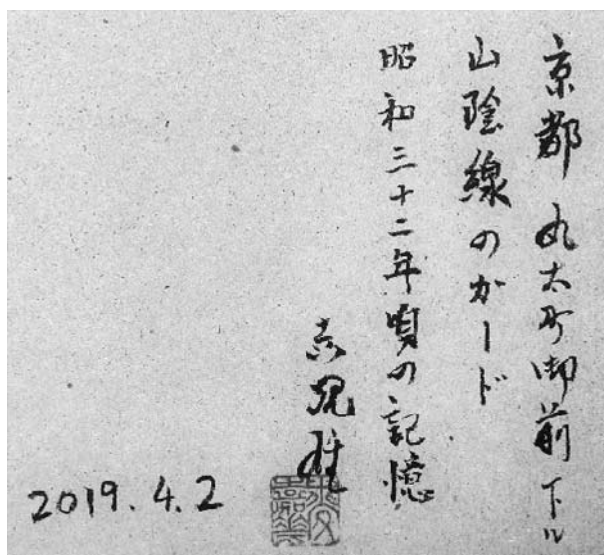 京都 丸太町御前下ル
山陰線のガード
昭和三十二年頃の記憶
2019.4.2